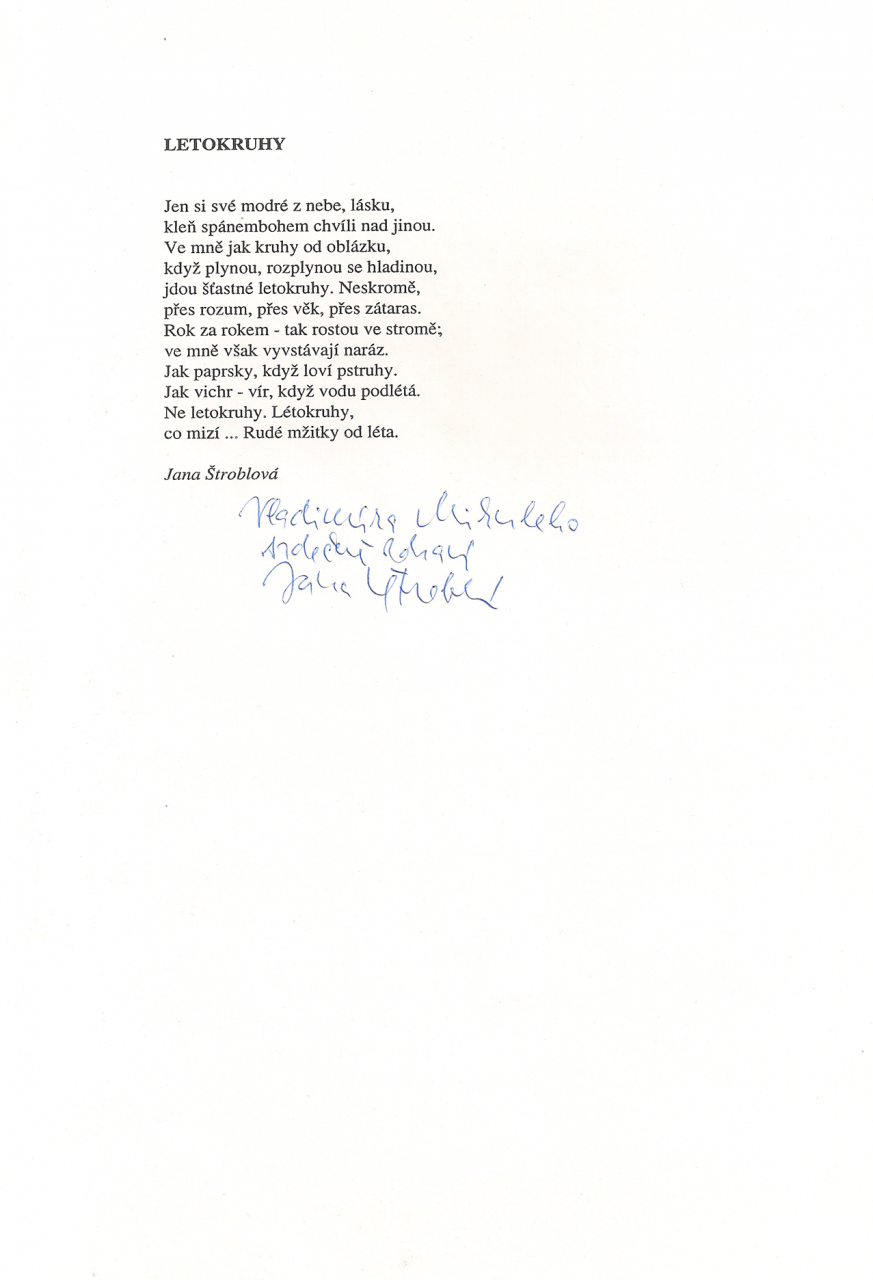 LETOKRUHY
Jen si své modré z nebe, lásku,
kleň spánembohem chvíli nad jinou.
Ve mně jak kruhy od oblázku,
když plynou, rozplynou se hladinou,
jdou šťastné letokruhy. Neskromě,
přes rozum, přes věk, přes zátaras.
Rok za rokem - tak rostou ve stromě;
ve mně však vyvstávají naráz.
Jak paprsky, když loví pstruhy.
Jak vichr - vír, když vodu podlétá.
Ne letokruhy. Létokruhy,
co mizí ... Rudé mžitky od léta.
Jana Štroblová
Vladimíra Mikuleho
srdečně zdraví
Jana Štroblová